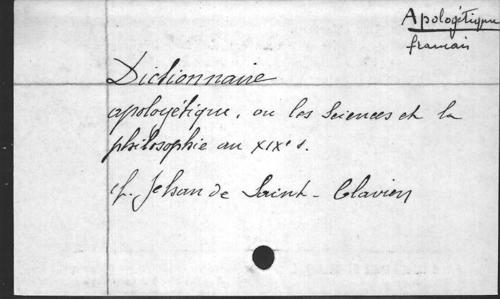 Apologétique
francais
Dictionnaire
apologétique, ou les Sciences et la
philosophie au XIXe s.
cf. Jehan de Saint-Clavien